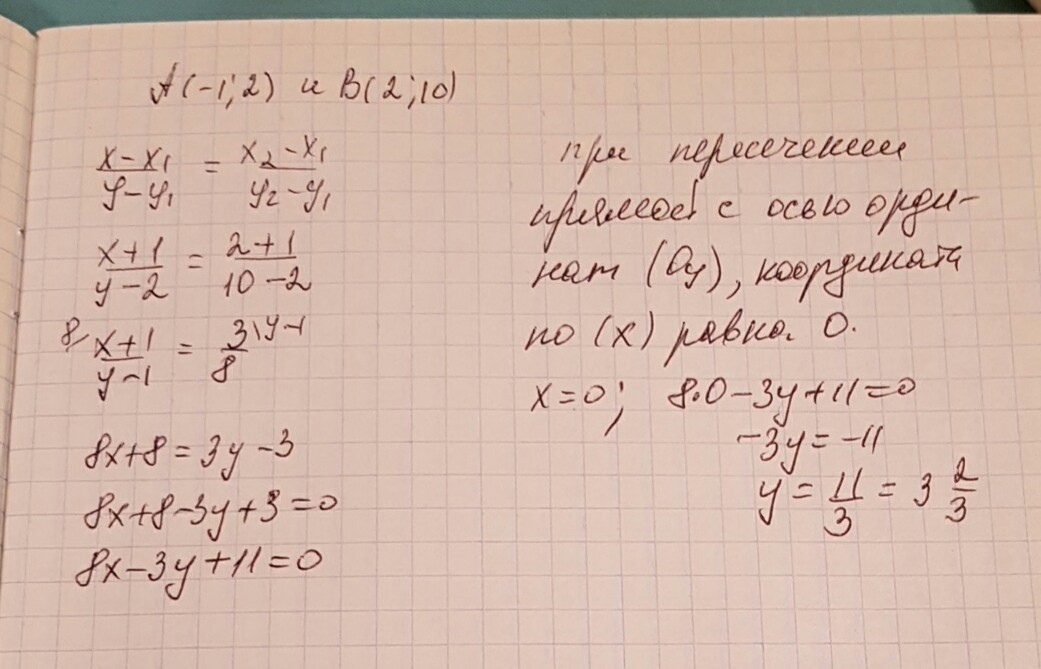 A(-1; 2) и B(2; 10)
x-x₁/y-y₁ = x₂-x₁/y₂-y₁
x+1/y-2 = 2+1/10-2
8/ x+1/y-1 = 3/8 \y-1
8x+8=3y-3
8x+8-3y+3=0
8x-3y+11=0
при пересечении
прямой с осью орди-
нат (Oy), координата
по (x) равна 0.
x=0; 8·0-3y+11=0
-3y=-11
y = 11/3 = 3 2/3